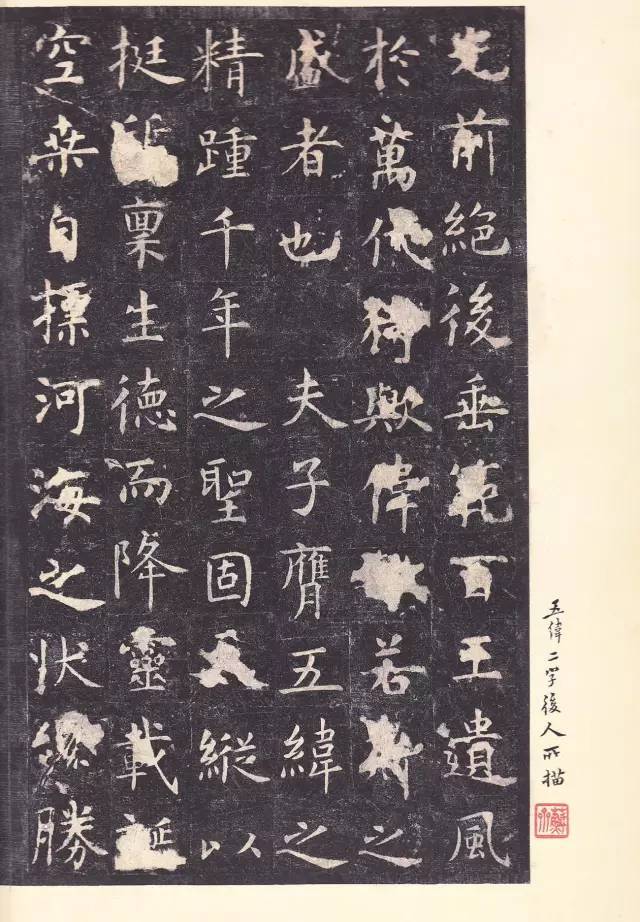 光前絕後垂範百王遺風
於萬代猗歟偉若斯之
盛者也 夫子膺五緯之
精踵千年之聖固天縱以
挺稟生德而降靈載誕
空桒自摽河海之狀纔勝
五偉二字後人所描